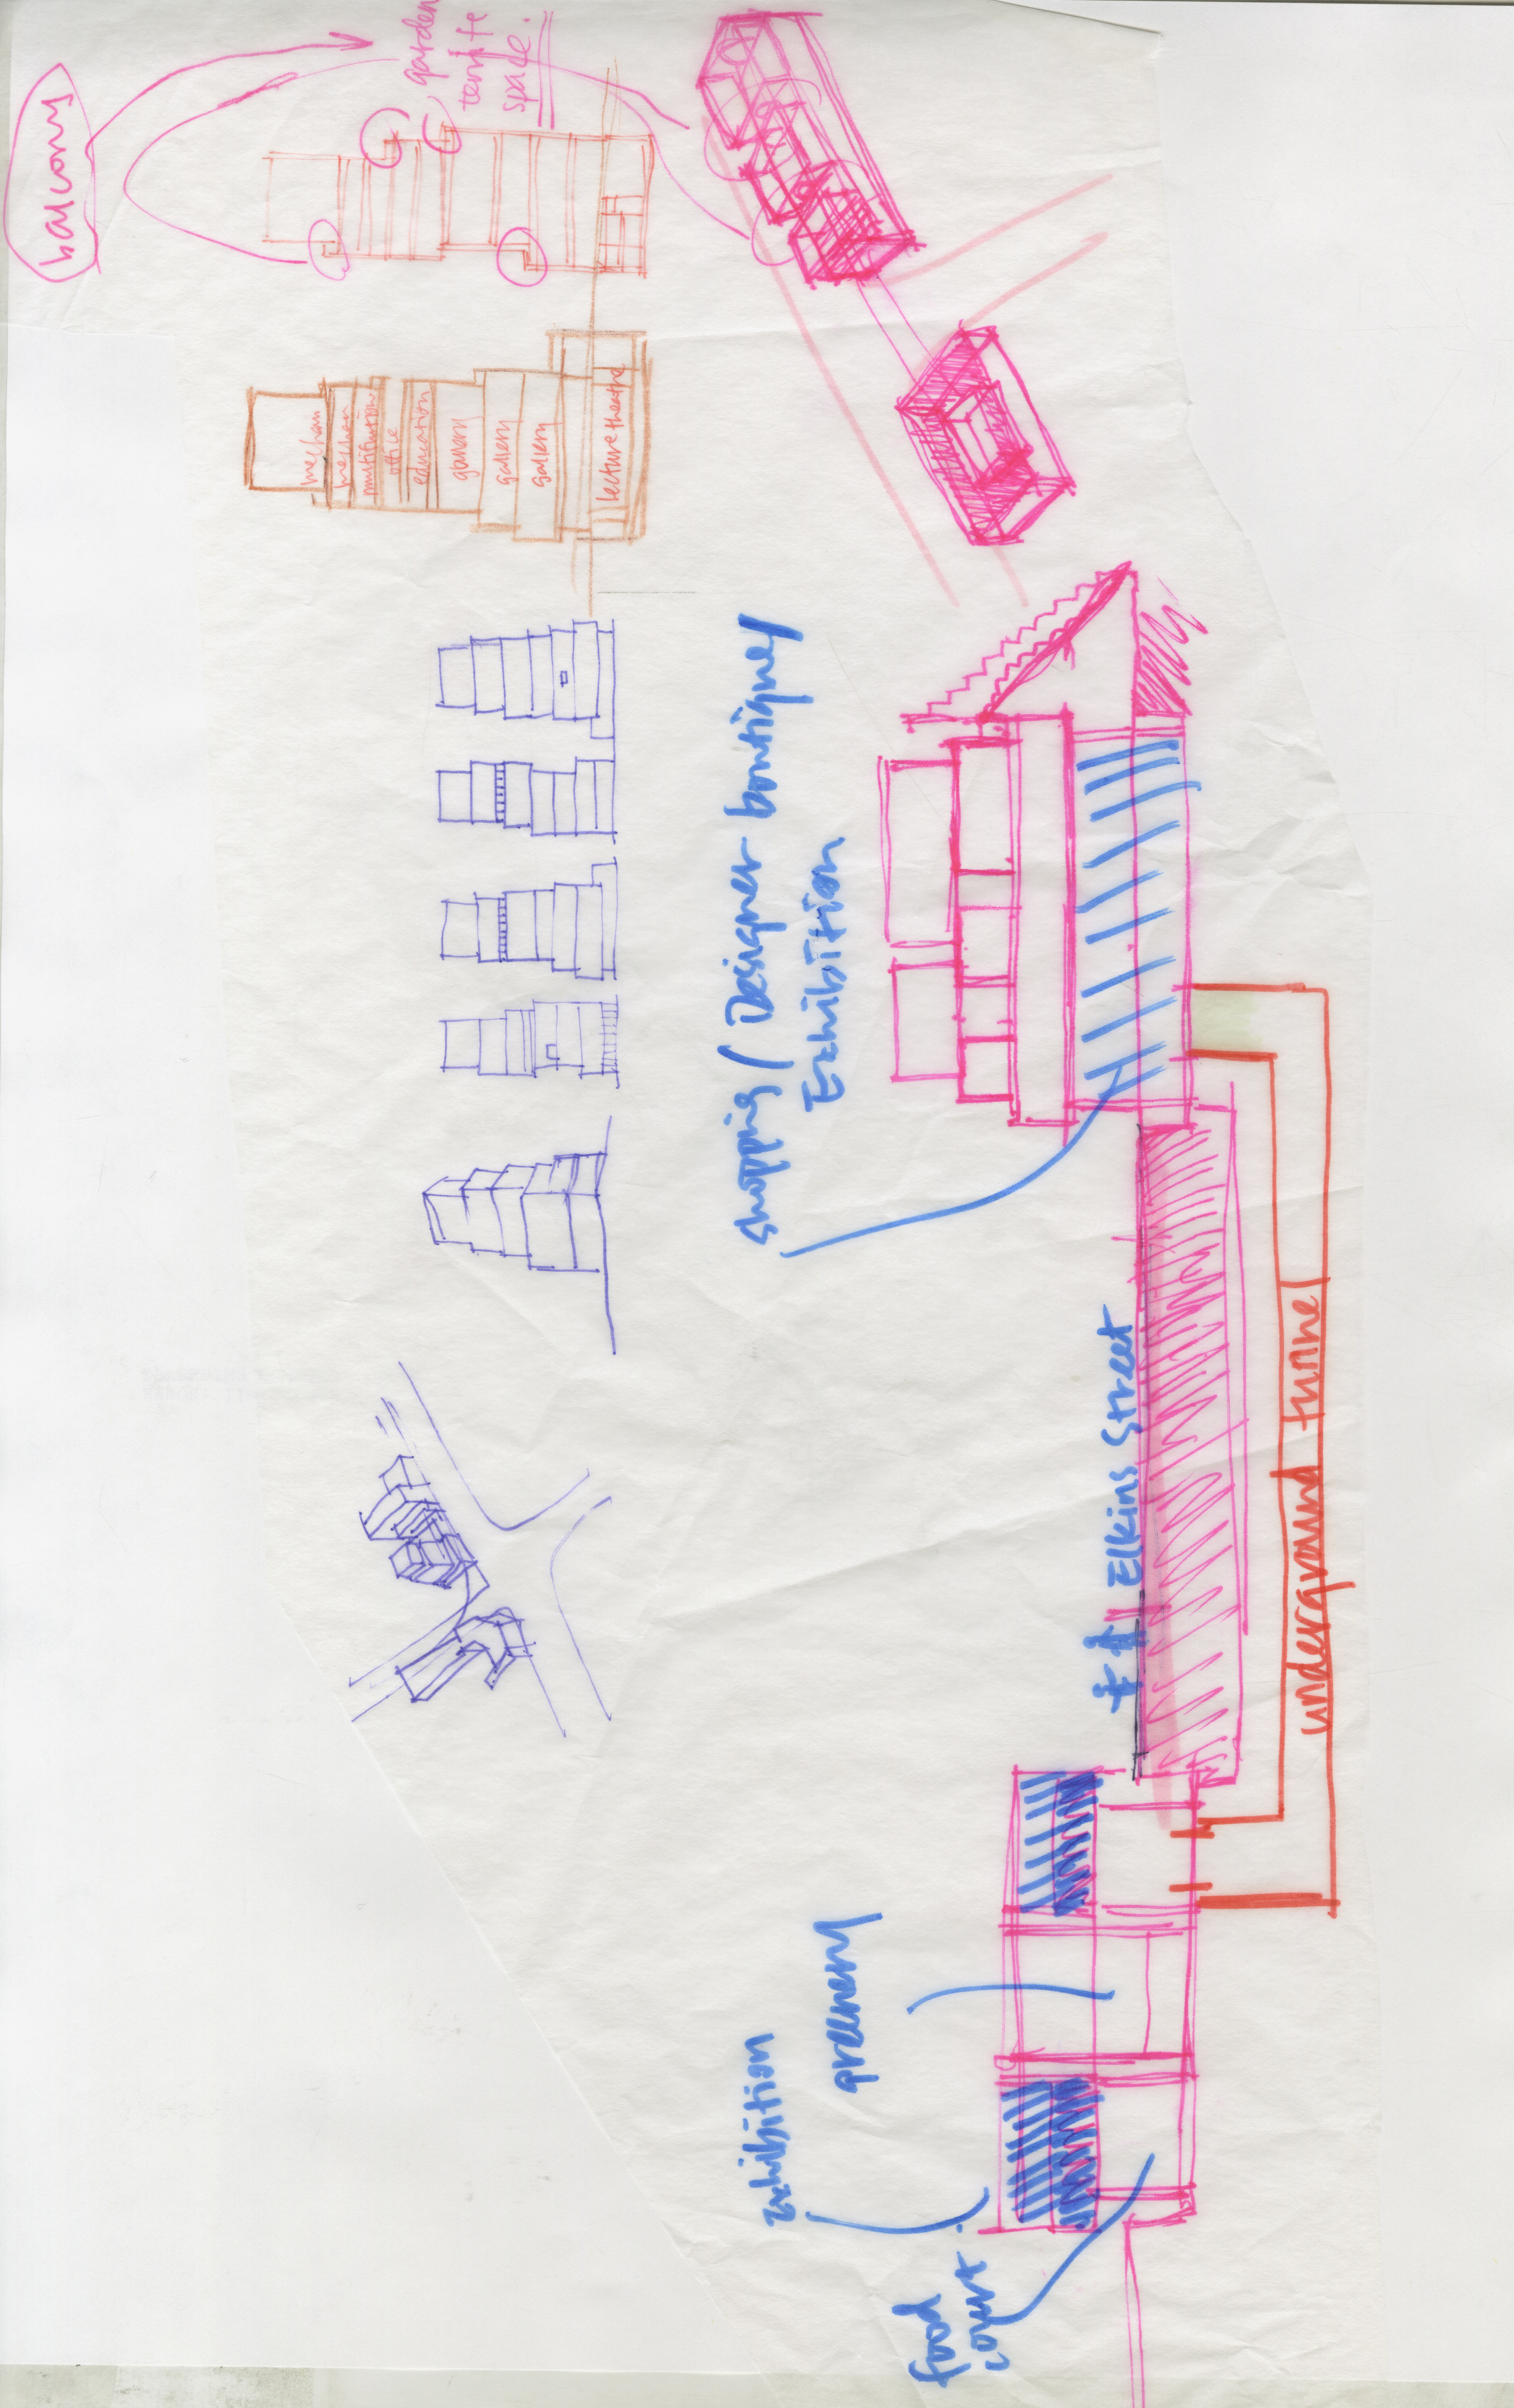 balcony
garden
space.
mechan
mechan
multifunction
office
education
gallery
gallery
gallery
lecture theatre
shopping / Designer boutique/
Exhibition
Elkins Street
underground tunnel
greenery
Exhibition
food
court